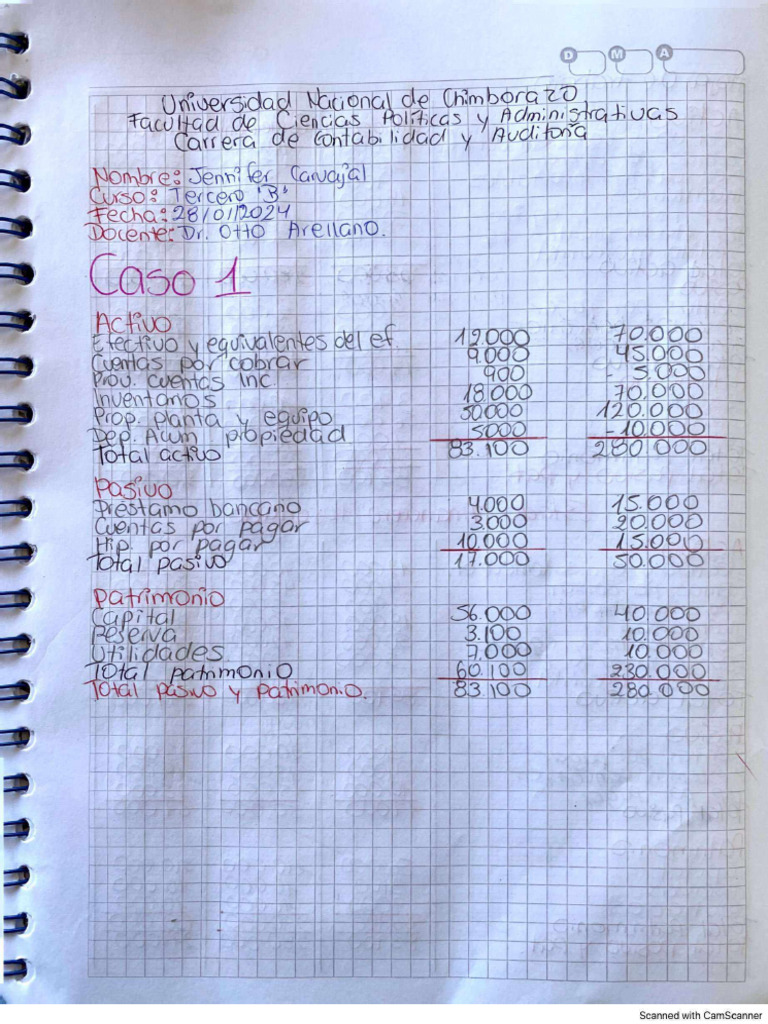 D M A
Universidad Nacional de Chimborazo
Facultad de Ciencias Políticas y Administrativas
Carrera de Contabilidad y Auditoría
Nombre: Jennifer Carvajal
Curso: Tercero "B"
Fecha: 28/01/2024
Docente: Dr. Otto Arellano.
Caso 1
Activo
Efectivo y equivalentes del ef 12.000 70.000
Cuentas por cobrar 9.000 45.000
Prov. cuentas Inc. 900 - 5.000
Inventarios 18.000 70.000
Prop. planta y equipo 50.000 120.000
Dep. Acum propiedad 5000 -10.000
Total activo 83.100 280.000
Pasivo
Préstamo bancario 4.000 15.000
Cuentas por pagar 3.000 20.000
Hip. por pagar 10.000 15.000
Total pasivo 17.000 50.000
Patrimonio
Capital 56.000 40.000
Reserva 3.100 10.000
Utilidades 7.000 10.000
Total patrimonio 60.100 230.000
Total pasivo y patrimonio. 83.100 280.000
Scanned with CamScanner